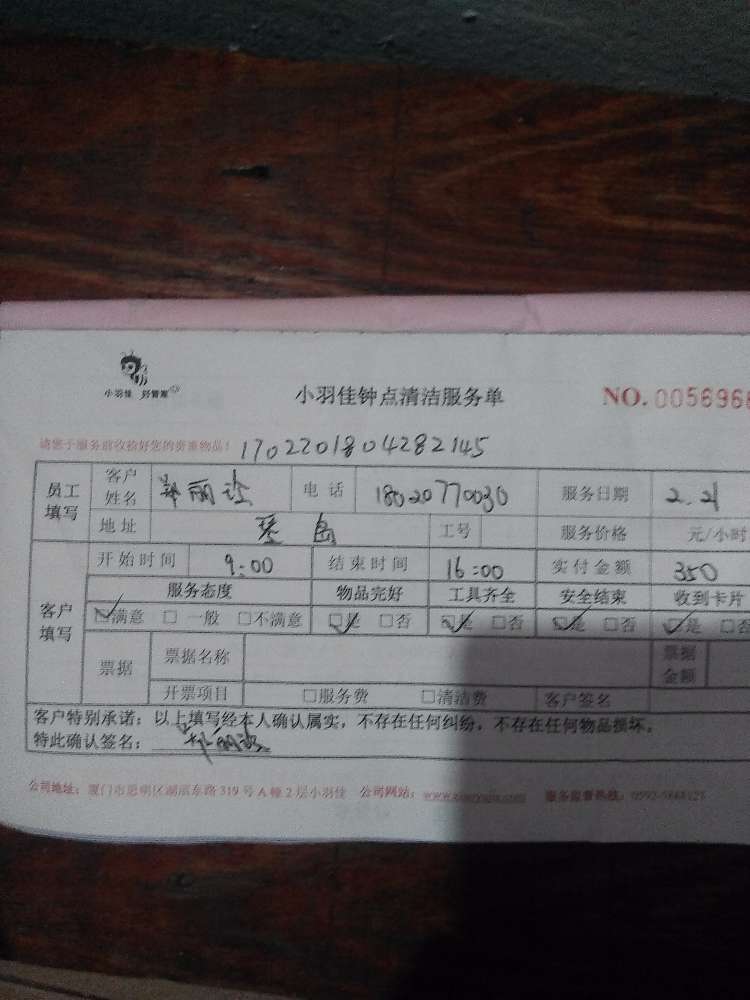 小羽佳 好管家
小羽佳钟点清洁服务单
NO. 0056968
请您于服务前收拾好您的贵重物品!
1702201804282145
员工填写 客户姓名 郑丽珍 电话 18020770030 服务日期 2.21
地址 琴岛 工号 服务价格 元/小时
开始时间 9:00 结束时间 16:00 实付金额 350
客户填写 服务态度 物品完好 工具齐全 安全结束 收到卡片
☑满意 □一般 □不满意 ☑是 □否 ☑是 □否 ☑是 □否 ☑是 □否
票据 票据名称 票据金额
开票项目 □服务费 □清洁费 客户签名
客户特别承诺：以上填写经本人确认属实，不存在任何纠纷，不存在任何物品损坏。
特此确认签名：郑丽珍
公司地址：厦门市思明区湖滨东路319号A幢2层小羽佳 公司网站： 服务监督热线：